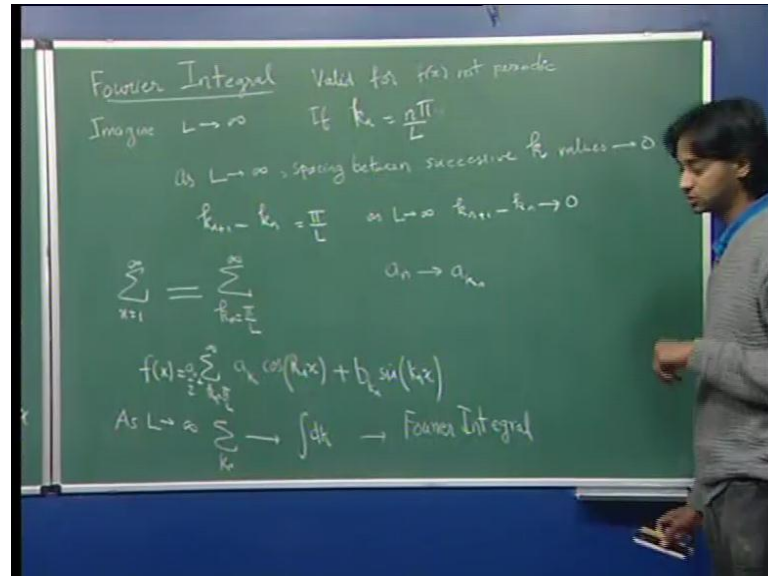 Fourier Integral Valid for f(x) not periodic
Imagine L → ∞ If kₙ = nπ/L
As L → ∞, spacing between successive k values → 0
kₙ₊₁ - kₙ = π/L as L → ∞ kₙ₊₁ - kₙ → 0
∑ₙ₌₁^∞ = ∑_{kₙ=π/L}^∞ aₙ → a_{kₙ}
f(x) = a₀/2 + ∑_{kₙ=π/L}^∞ aₖ cos(kₙx) + b_{kₙ} sin(kₙx)
As L → ∞ ∑_{kₙ} → ∫dk → Fourier Integral